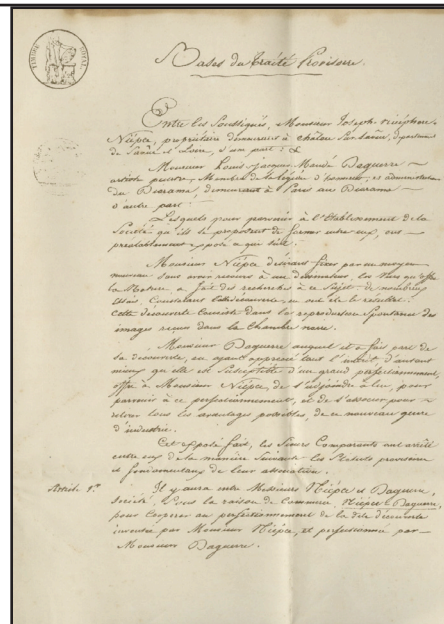 TIMBRE ROYAL
Bases du Traité Provisoire.
Entre les Soussignés, Monsieur Joseph Nicéphore
Niépce, propriétaire demeurant à Châlon sur Saône, département
de Saône et Loire, d'une part : &
Monsieur Louis Jacques Mandé Daguerre
artiste peintre, Membre de la Légion d'honneur, et administrateur
du Diorama, demeurant à Paris au Diorama
d'autre part :
Lesquels pour parvenir à l'Etablissement de la
Société qu'ils se proposent de former entre eux, ont
préalablement exposé ce qui suit :
Monsieur Niépce désirant fixer par un moyen
nouveau sans avoir recours à un dessinateur, les vues qu'offre
la Nature, a fait des recherches à ce sujet. De nombreux
essais, Constatant cette découverte, en ont été le résultat.
Cette découverte Consiste dans la reproduction Spontanée des
images reçues dans la Chambre noire.
Monsieur Daguerre auquel il a fait part de
sa découverte, en ayant apprécié tout l'interêt, d'autant
mieux qu'elle est Susceptible d'un grand perfectionnement,
offre à Monsieur Niépce, de s'adjoindre à lui, pour
parvenir à ce perfectionnement, et de s'associer pour
retirer tous les avantages possibles, de ce nouveau genre
d'industrie.
Cet exposé fait, les Sieurs Comparants ont arrêté
entre eux de la manière Suivante les Statuts provisoires
et fondamentaux de leur association.
Article 1er Il y aura entre Messieurs Niépce et Daguerre,
Société, Sous la raison de Commerce Niépce-Daguerre,
pour Coopérer au perfectionnement de la dite découverte
inventée par Monsieur Niépce, et perfectionnée par
Monsieur Daguerre.